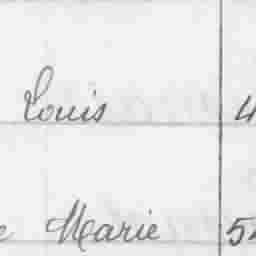 Louis 4
Marie 54